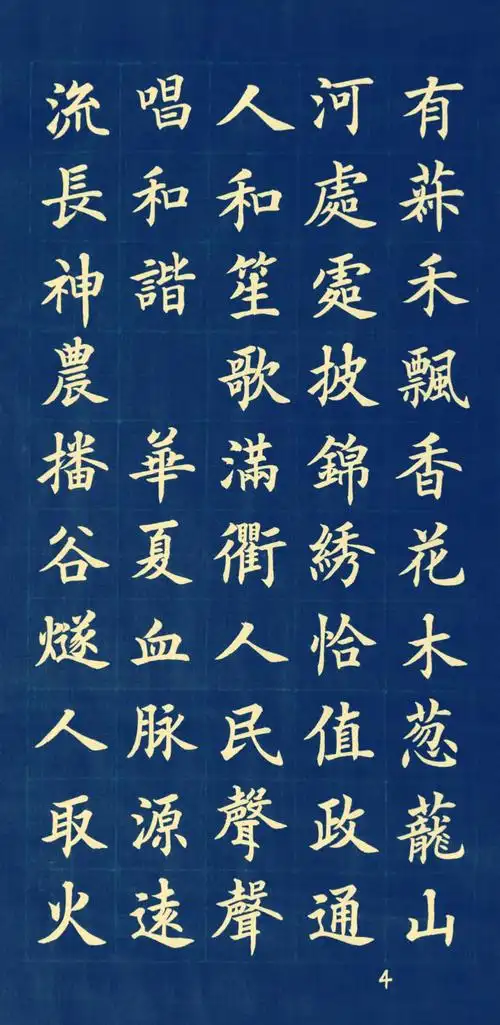 有蘇禾飄香花木葱蘢山
河處處披錦綉恰值政通
人和笙歌滿衢人民聲聲
唱和諧 華夏血脉源遠
流長神農播谷燧人取火
4